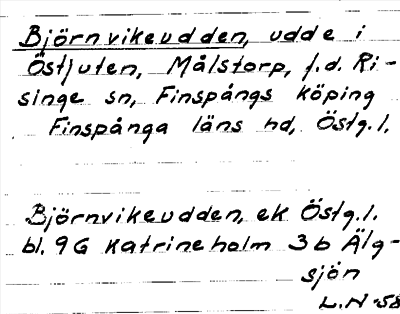 Björnvikeudden, udde i
Östjuten, Målstorp, f.d. Ri-
singe sn, Finspångs köping
Finspånga läns hd, Östg.l.
Björnvikeudden, ek Östg.l.
bl. 9G Katrineholm 3b Älg-
sjön
L.N-58